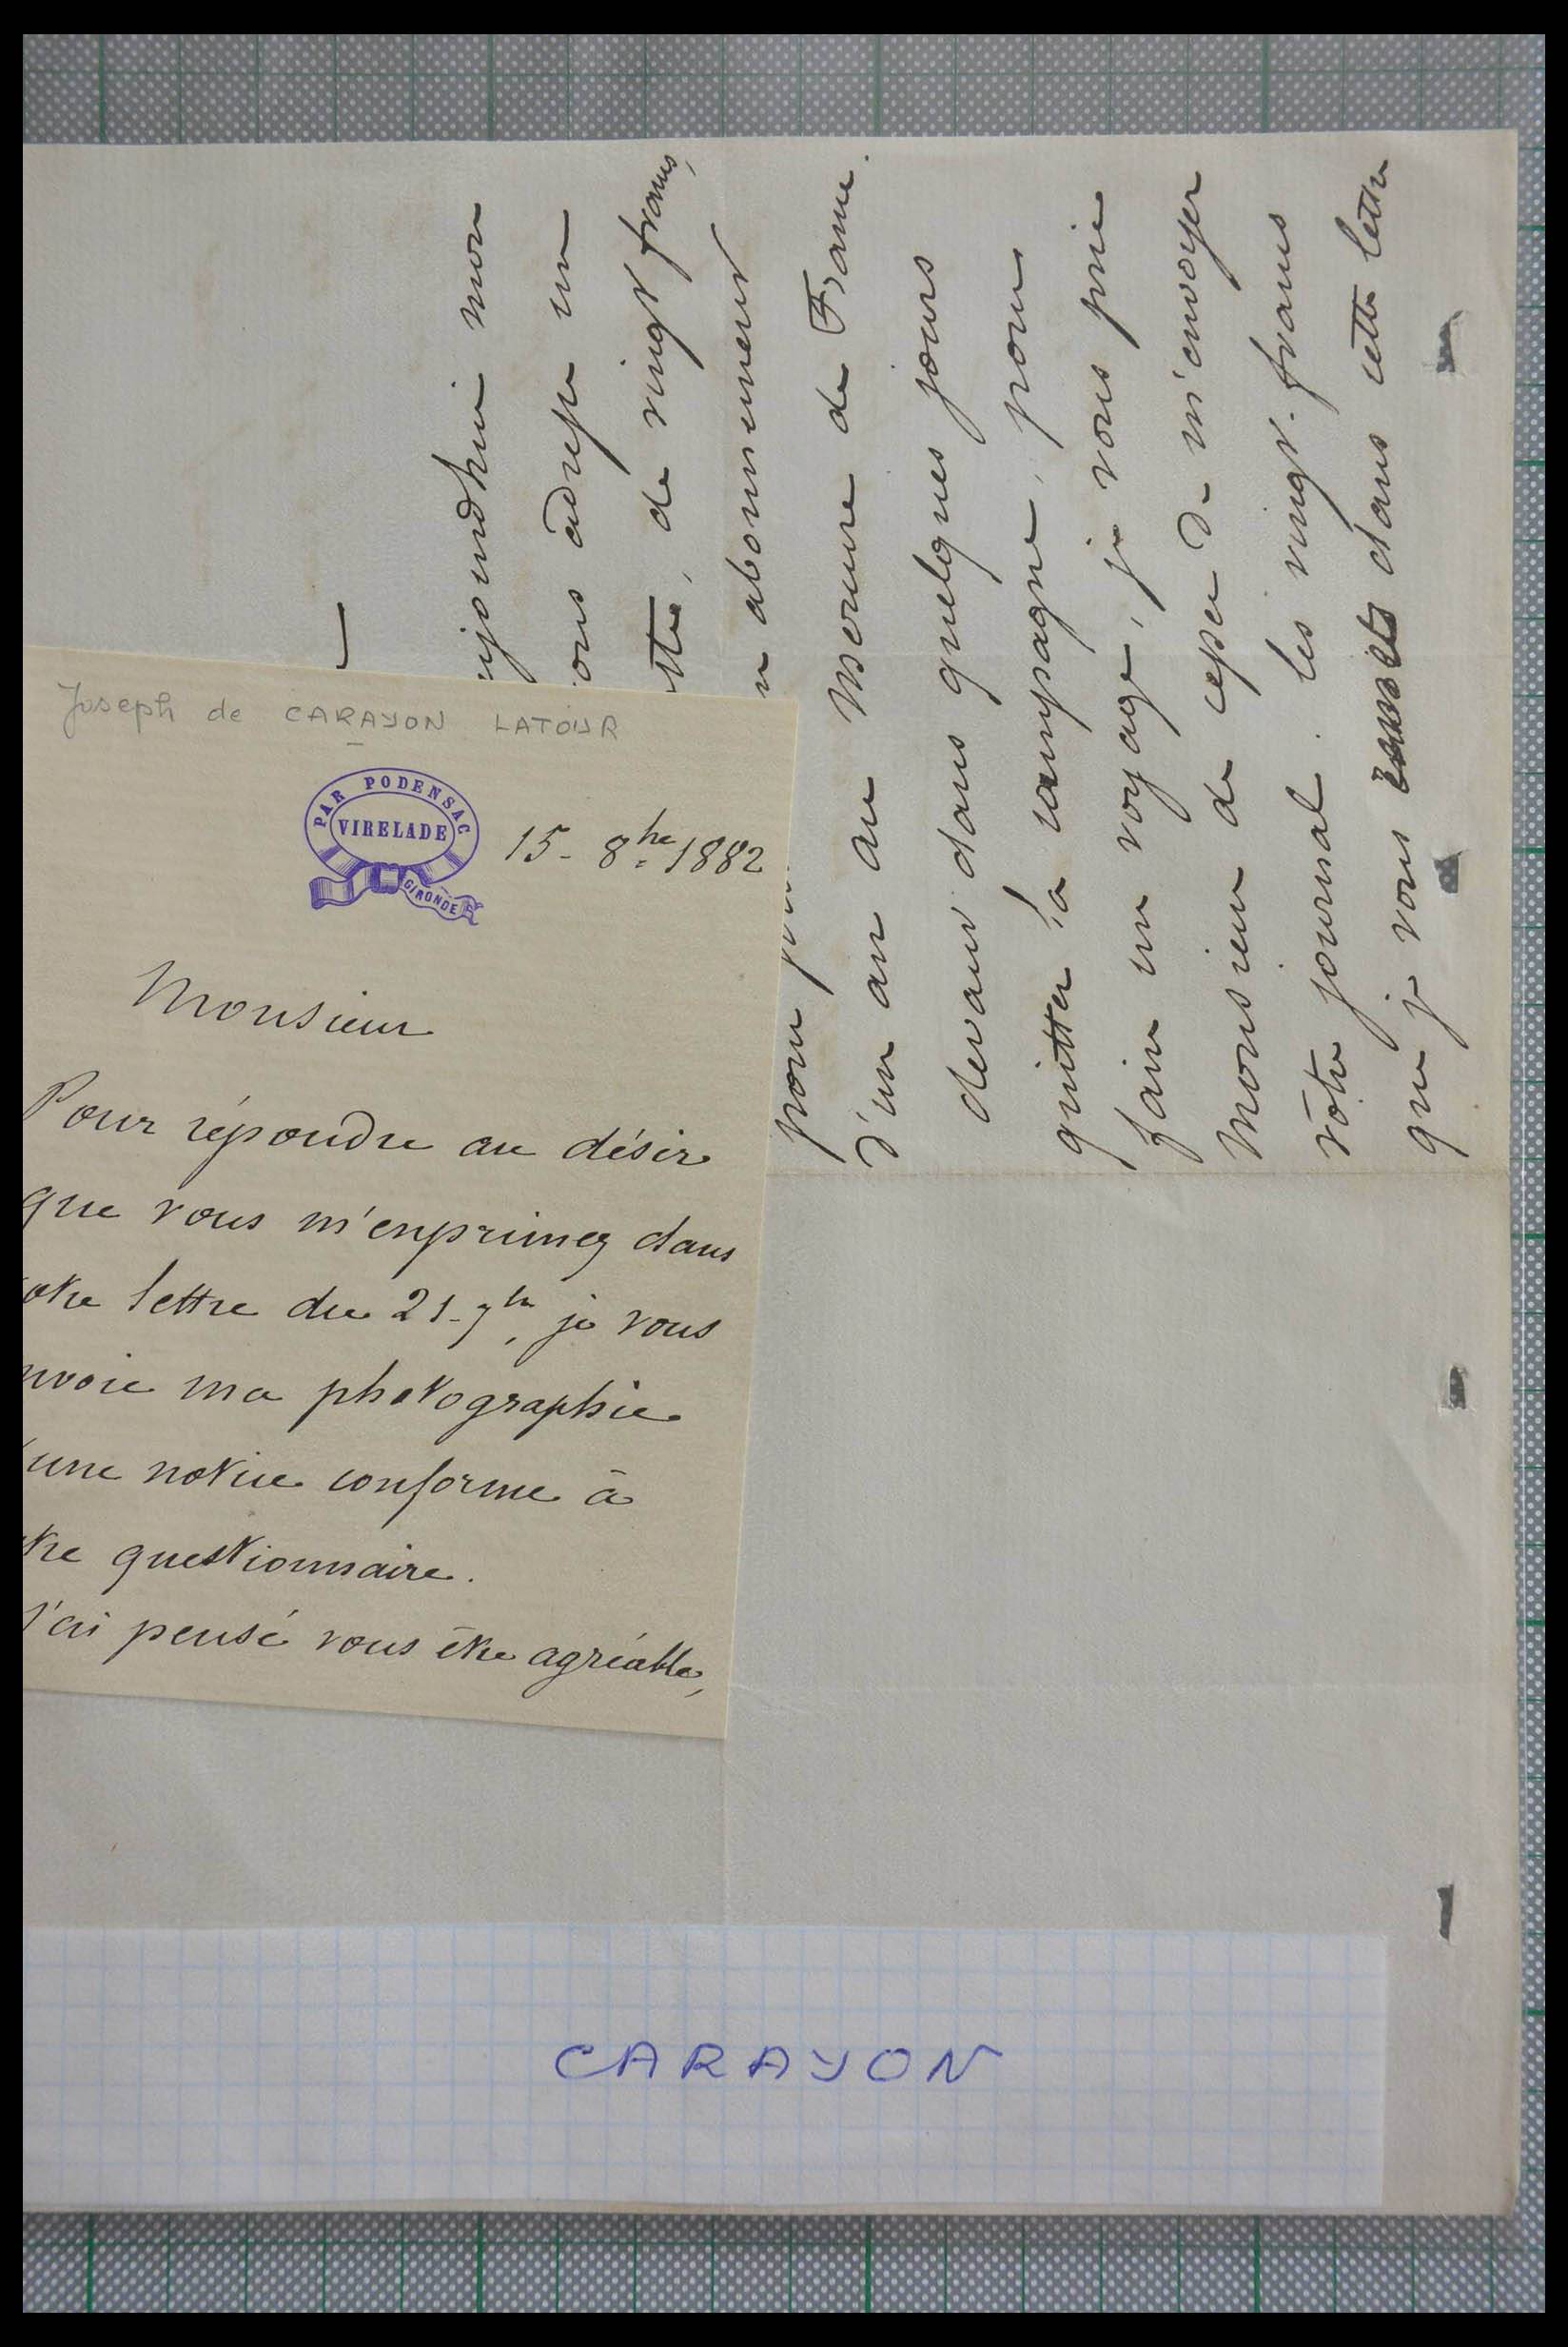 Joseph de CARAYON LATOUR
PAR PODENSAC
VIRELADE
GIRONDE
15 - 8bre 1882
Monsieur
Pour répondre au désir
que vous m'exprimez dans
otre lettre du 21 - 7bre, je vous
nvoie ma photographie
une notice conforme à
tre questionnaire.
J'ai pensé vous être agréable,
ujourdhui mon
ous adresse un
ttre, de vingt francs,
n abonnement
pour
d'un an au Mercure de France.
devant dans quelques jours
quitter la campagne, pour
faire un voyage, je vous prie
Monsieur de cesser de m'envoyer
vôtre journal. les vingt francs
que je vous dans cette lettre
CARAYON